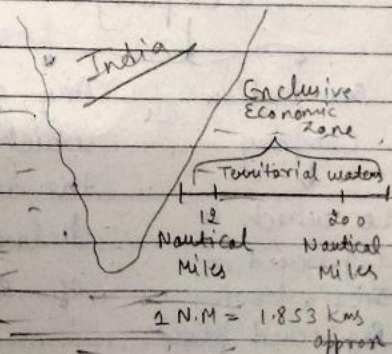 India
Exclusive
Economic
Zone
Territorial waters
12
Nautical
Miles
200
Nautical
Miles
1 N.M = 1.853 kms
approx